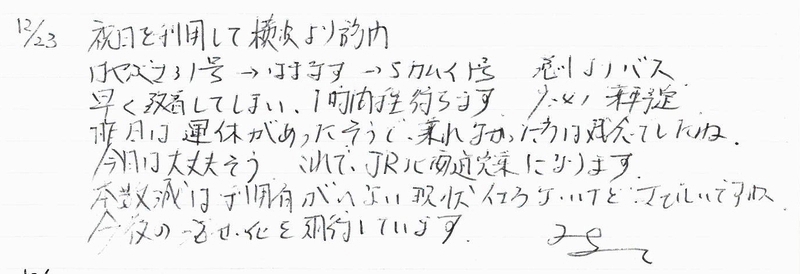 12/23 祝日を利用して横浜より訪問
はやぶさ31号→はまなす→Sカムイ1号 滝川よりバス
早く到着してしまい、1時間程待ちます 乗車予定
昨日は運休があったそうで、乗れなかった方は残念でしたね。
今日は大丈夫そう これで、JR北海道完乗になります。
本数減は利用者がいない現状 仕方ないけど さびしいですね
今夜の を 行しています。